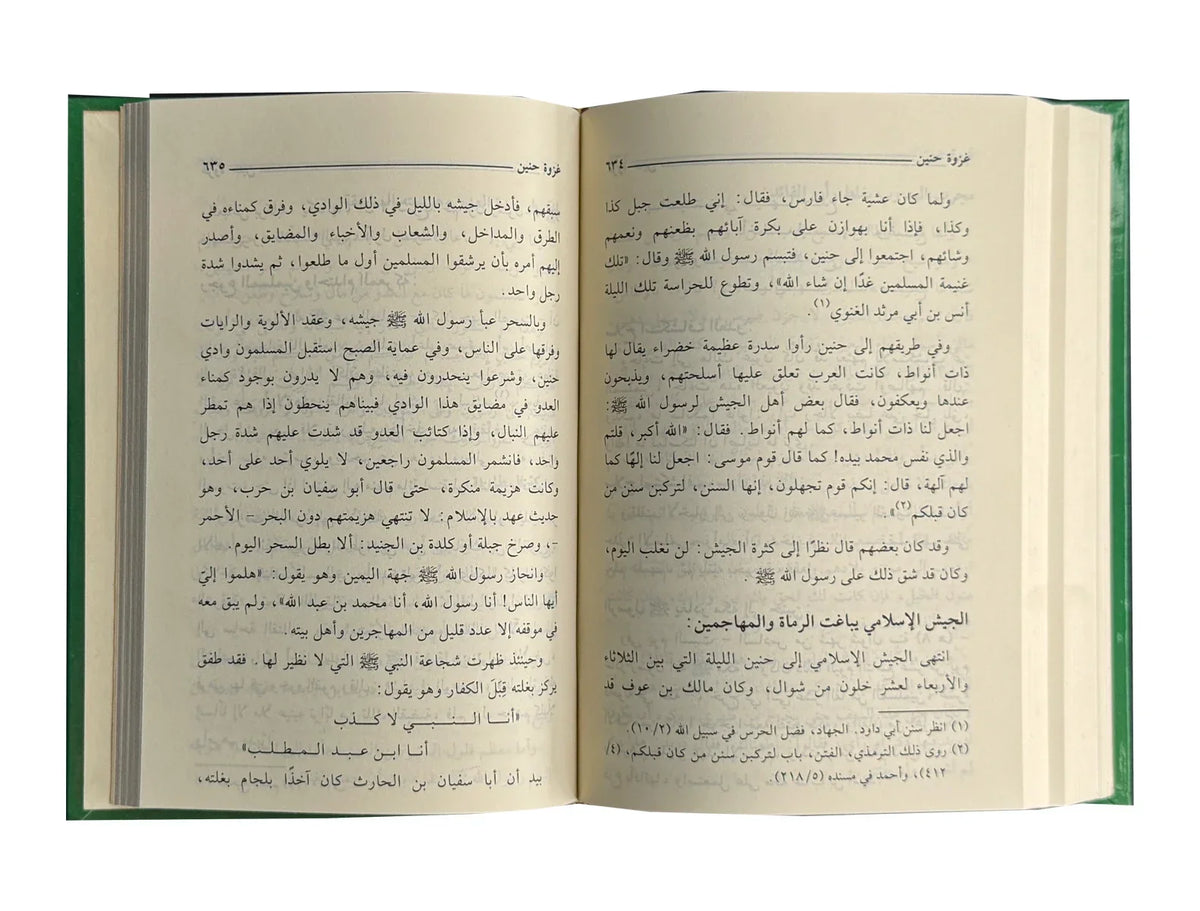 غزوة حنين ٦٣٤
ولما كان عشية جاء فارس، فقال: إني طلعت جبل كذا
وكذا، فإذا أنا بهوازن على بكرة آبائهم بظعنهم ونعمهم
وشائهم، اجتمعوا إلى حنين، فتبسم رسول الله ﷺ وقال: «تلك
غنيمة المسلمين غدًا إن شاء الله»، وتطوع للحراسة تلك الليلة
أنس بن أبي مرثد الغنوي (١).
وفي طريقهم إلى حنين رأوا سدرة عظيمة خضراء يقال لها
ذات أنواط، كانت العرب تعلق عليها أسلحتهم، ويذبحون
عندها ويعكفون، فقال بعض أهل الجيش لرسول الله ﷺ:
اجعل لنا ذات أنواط، كما لهم أنواط. فقال: «الله أكبر، قلتم
والذي نفس محمد بيده! كما قال قوم موسى: اجعل لنا إلهًا كما
لهم آلهة، قال: إنكم قوم تجهلون، إنها السنن، لتركبن سنن من
كان قبلكم(٢)».
وقد كان بعضهم قال نظرًا إلى كثرة الجيش: لن نغلب اليوم،
وكان قد شق ذلك على رسول الله ﷺ.
الجيش الإسلامي يباغت الرماة والمهاجمين:
انتهى الجيش الإسلامي إلى حنين الليلة التي بين الثلاثاء
والأربعاء لعشر خلون من شوال، وكان مالك بن عوف قد
(١) انظر سنن أبي داود. الجهاد، فضل الحرس في سبيل الله (١٠/٢).
(٢) روى ذلك الترمذي، الفتن، باب لتركبن سنن من كان قبلكم، (٤/
٤١٢)، وأحمد في مسنده (٢١٨/٥).
غزوة حنين ٦٣٥
سبقهم، فأدخل جيشه بالليل في ذلك الوادي، وفرق كمناءه في
الطرق والمداخل، والشعاب والأخباء والمضايق، وأصدر
إليهم أمره بأن يرشقوا المسلمين أول ما طلعوا، ثم يشدوا شدة
رجل واحد.
وبالسحر عبأ رسول الله ﷺ جيشه، وعقد الألوية والرايات
وفرقها على الناس، وفي عماية الصبح استقبل المسلمون وادي
حنين، وشرعوا ينحدرون فيه، وهم لا يدرون بوجود كمناء
العدو في مضايق هذا الوادي فبيناهم ينحطون إذا هم تمطر
عليهم النبال، وإذا كتائب العدو قد شدت عليهم شدة رجل
واحد، فانشمر المسلمون راجعين، لا يلوي أحد على أحد،
وكانت هزيمة منكرة، حتى قال أبو سفيان بن حرب، وهو
حديث عهد بالإسلام: لا تنتهي هزيمتهم دون البحر – الأحمر
–، وصرخ جبلة أو كلدة بن الجنيد: ألا بطل السحر اليوم.
وانحاز رسول الله ﷺ جهة اليمين وهو يقول: «هلموا إليّ
أيها الناس! أنا رسول الله، أنا محمد بن عبد الله»، ولم يبق معه
في موقفه إلا عدد قليل من المهاجرين وأهل بيته.
وحينئذ ظهرت شجاعة النبي ﷺ التي لا نظير لها. فقد طفق
يركز بغلته قِبَلَ الكفار وهو يقول:
«أنا النبي لا كذب
أنا ابن عبد المطلب»
بيد أن أبا سفيان بن الحارث كان آخذًا بلجام بغلته،